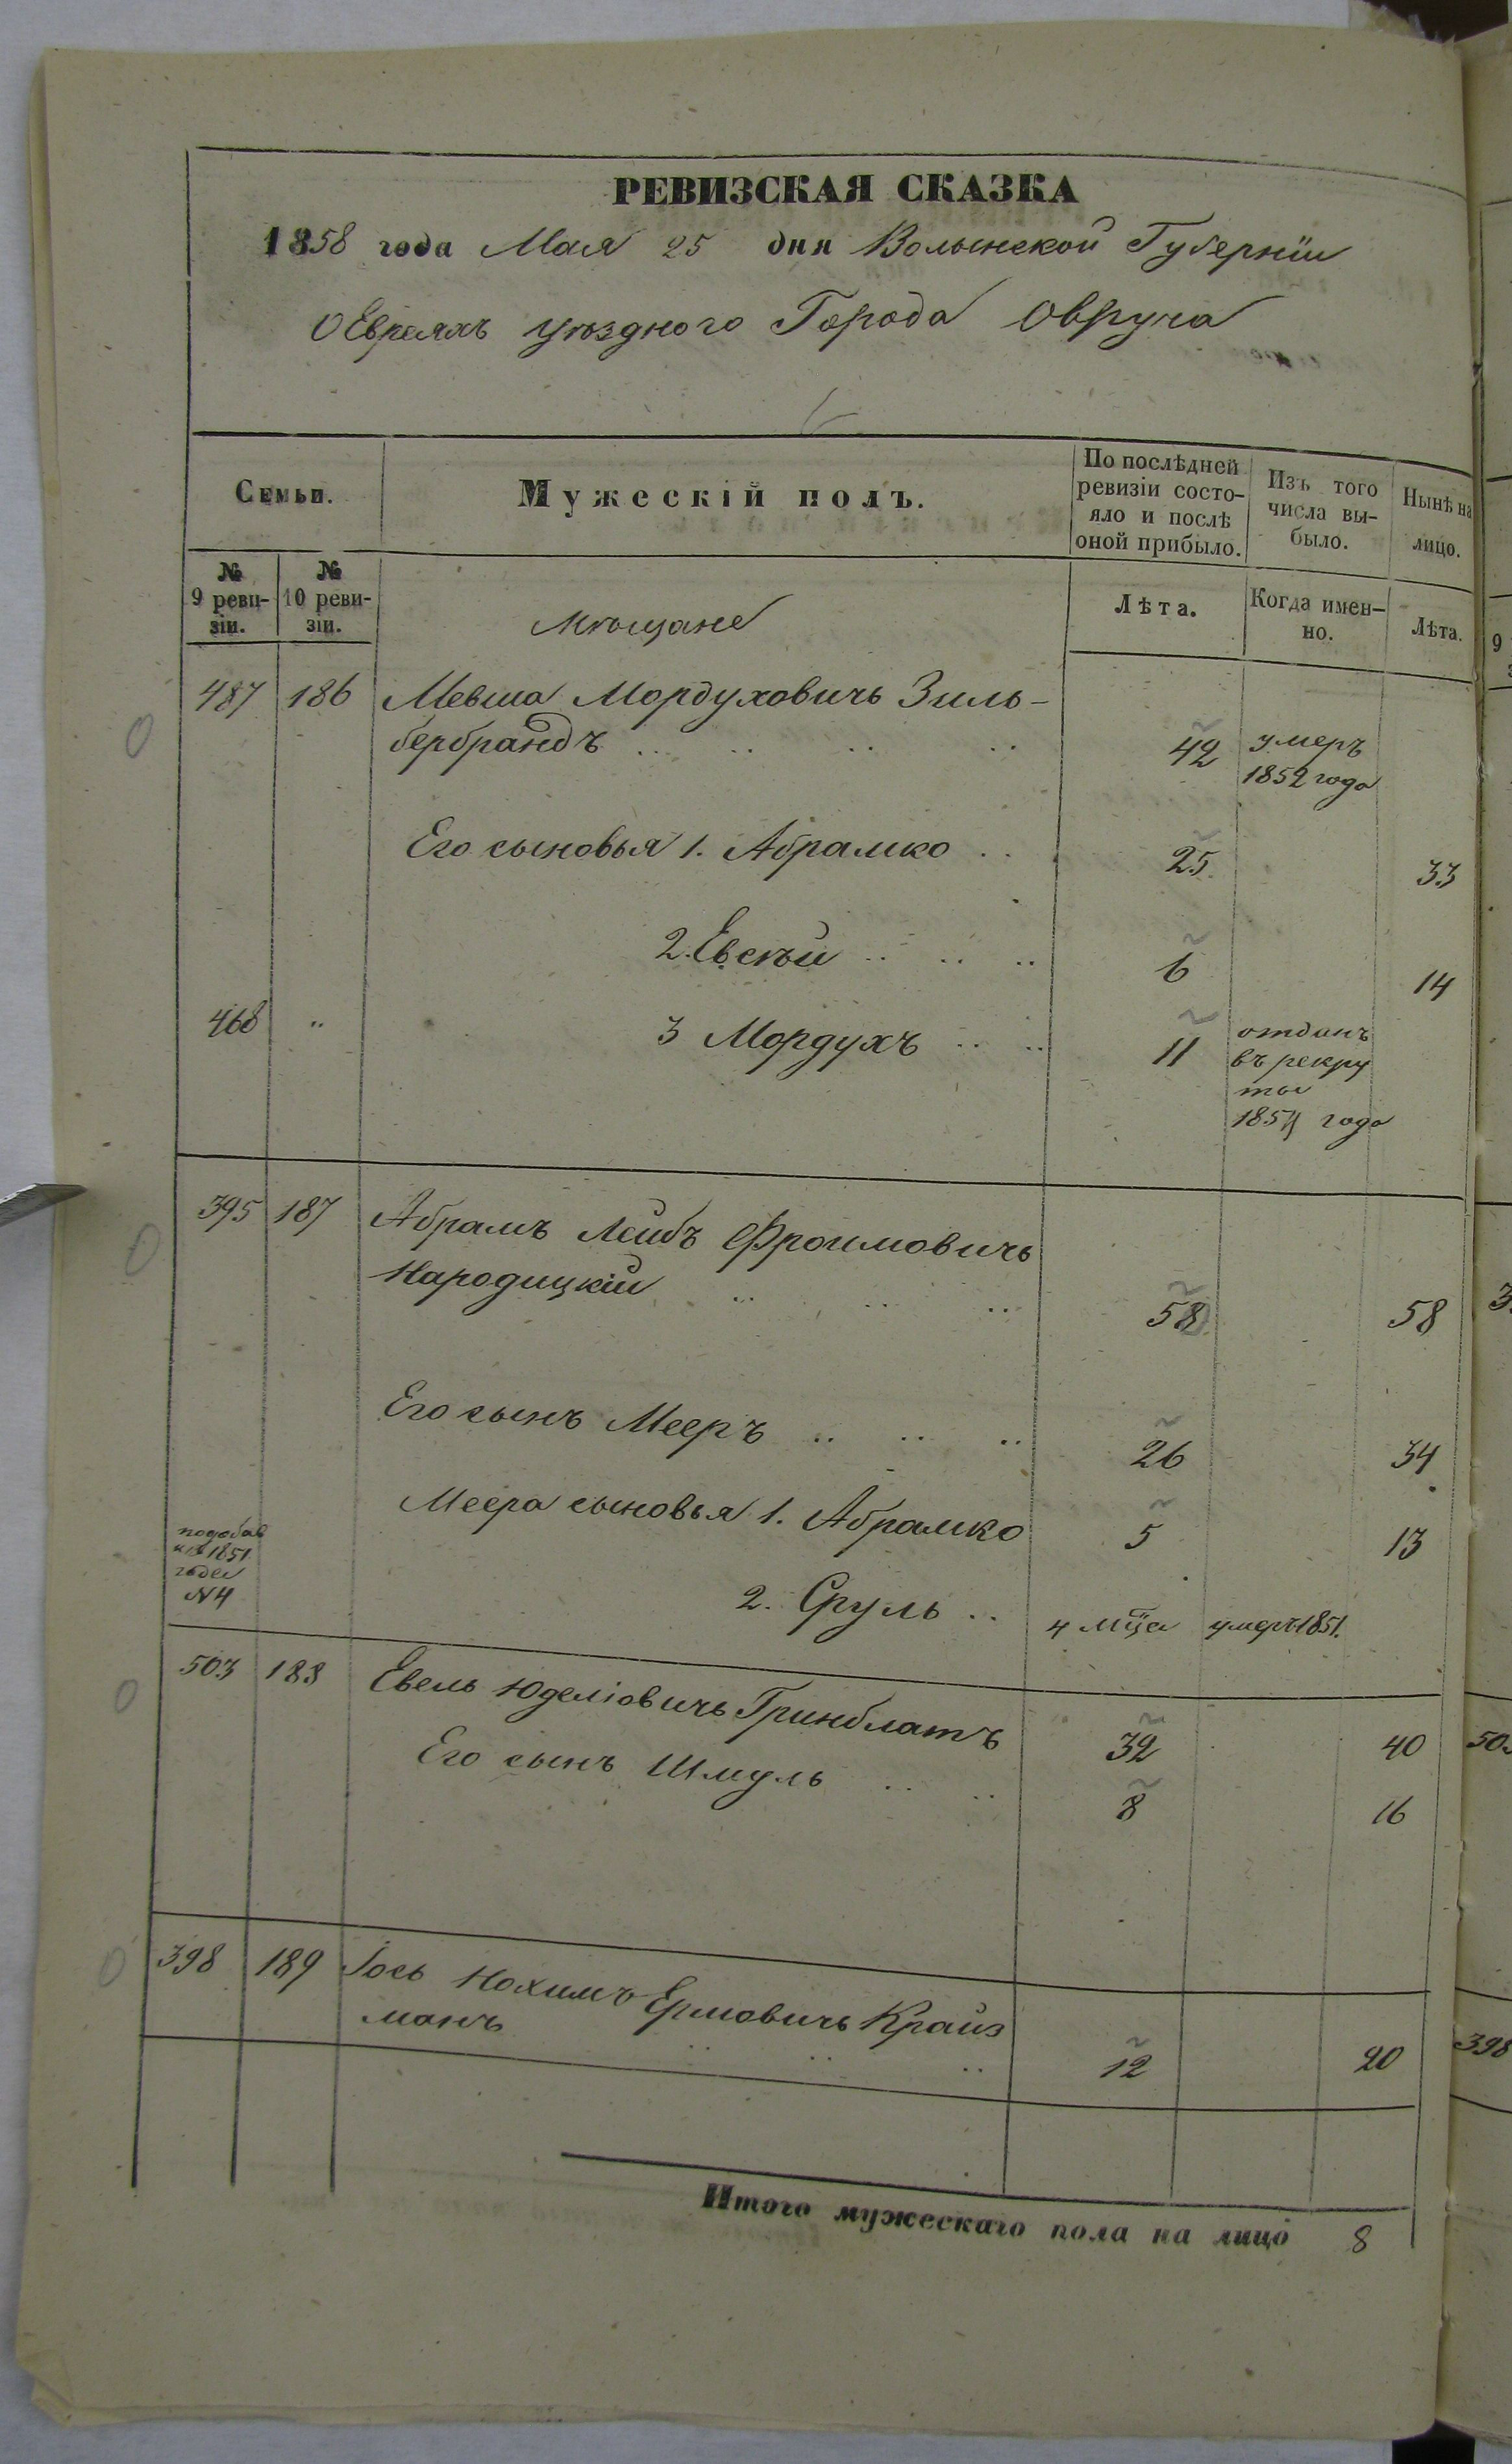 РЕВИЗСКАЯ СКАЗКА
1858 года Мая 25 дня Волынской Губерніи
О Евреяхъ уѣзднаго Города Овруча
Семьи.
Мужескій полъ.
По послѣдней ревизіи состо-
яло и послѣ
оной прибыло.
Изъ того
числа вы-
было.
Нынѣ на
лицо.
№
9 реви-
зіи.
№
10 реви-
зіи.
мѣщане
Лѣта.
Когда имен-
но.
Лѣта.
487 186 Мевша Мордуховичь Зиль-
бербрандъ .. .. .. .. 42 умеръ
1852 года
Его сыновья 1. Абрамко .. 25 33
2. Евсѣй .. .. .. 6 14
468 .. 3 Мордухъ .. .. 11 отданъ
въ рекру
ты
1854 года
395 187 Абрамъ Лейбъ Фроимовичь
Народицкій .. .. .. 58 58
Его сынъ Мееръ .. .. .. 26 34
Меера сыновья 1. Абрамко 5 13
1851
года
N4
2. Сруль .. 4 мца умеръ 1851.
503 188 Евель Юделіовичь Гринблатъ 32 40
Его сынъ Шмуль .. .. 8 16
398 189 Іось Нохимъ Ермовичь Крайз
манъ .. .. .. 12 20
Итого мужескаго пола на лицо 8
9
50
398